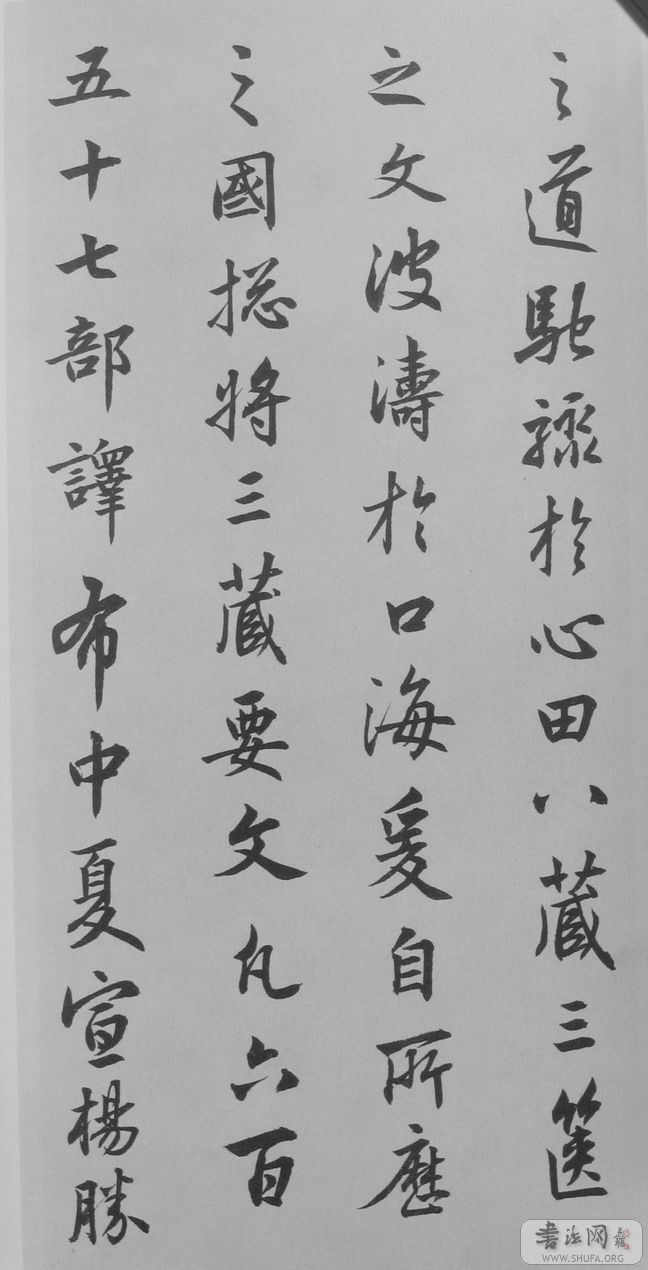 之道馳驟於心田八藏三篋
之文波濤於口海爰自所歷
之國揔將三藏要文凡六百
五十七部譯布中夏宣楊勝
書法网
WWW.SHUFA.ORG